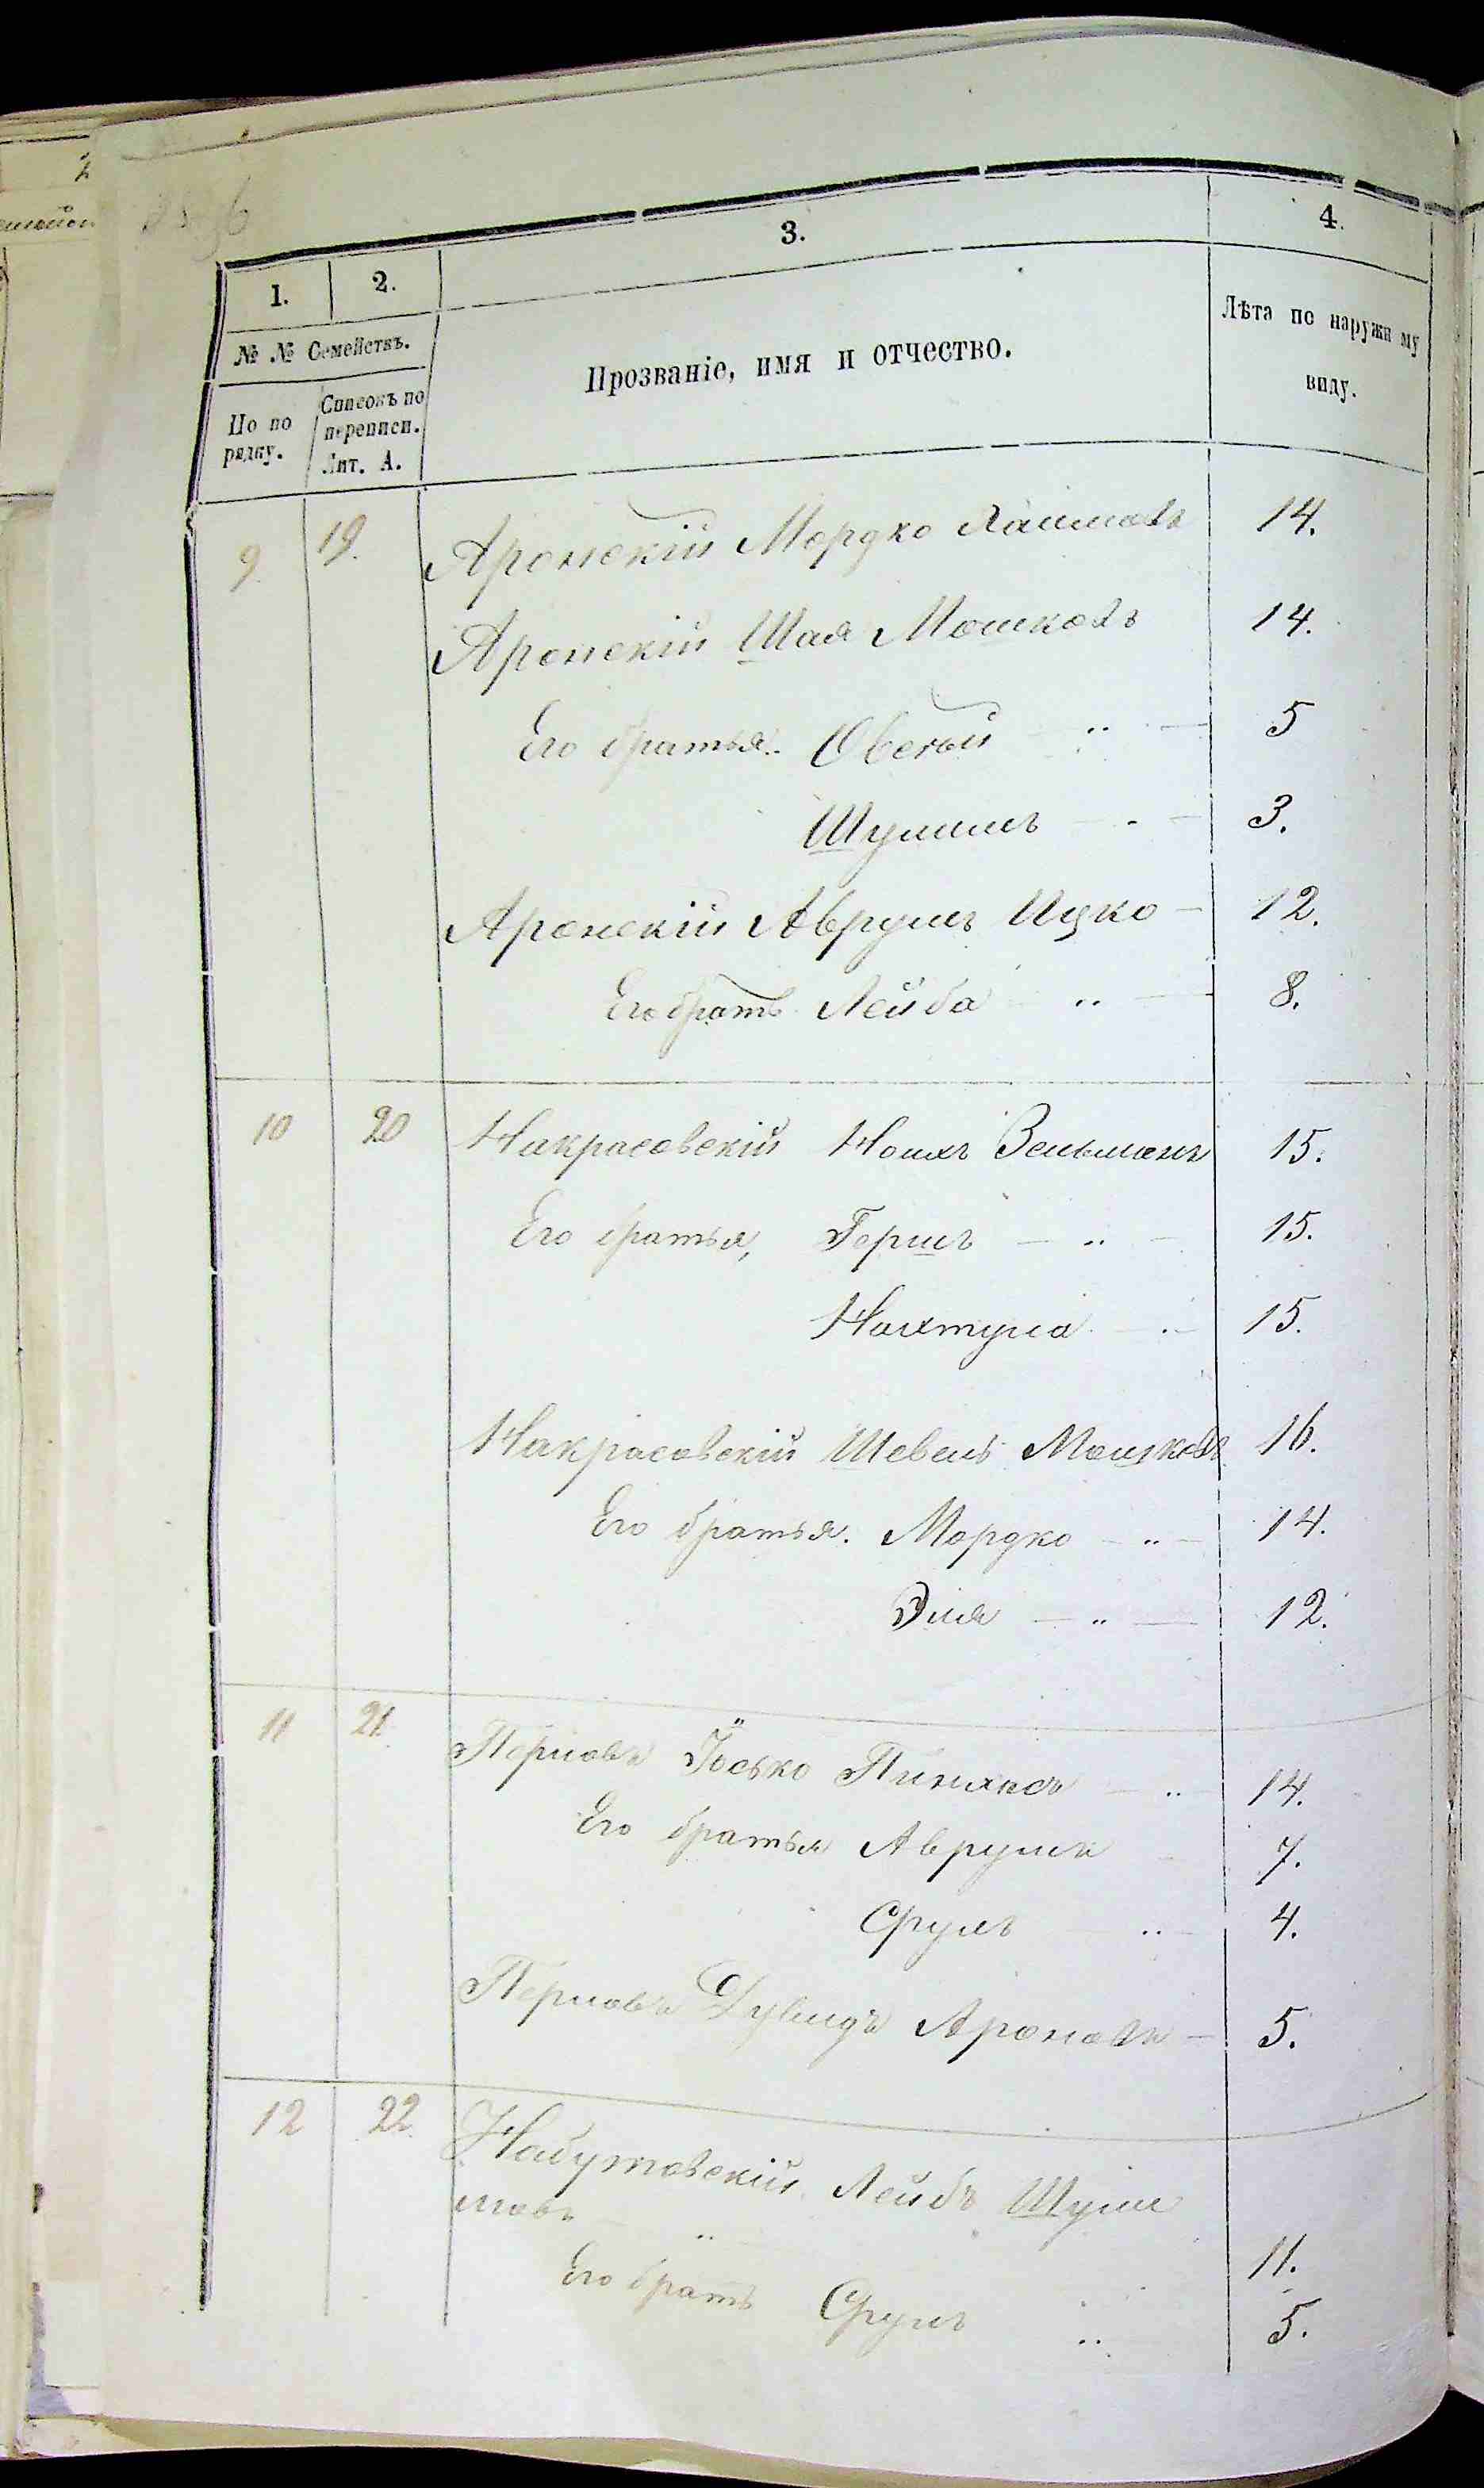 3.
4.
1.
2.
№ № Семействъ.
Прозваніе, имя и отчество.
Лѣта по наружн му
виду.
По по
рядку.
Списокъ по
переписи.
Лит. А.
9. 19. Аронскій Мордко Хаимовъ 14.
Аронскій Шая Мошковъ 14.
Его братья: Овсѣй 5
Шулимъ 3.
Аронскій Аврумъ Ицко 12.
Его братъ Лейба 8.
10 20 Накрасовскій Зельманъ 15.
Его братья, Гершъ 15.
Нахтула 15.
Накрасовскій Шевель Мошковъ 16.
Его братья. Мордко 14.
Эля 12.
11 21 Іосько Пинхасъ 14.
Его братья Аврумъ 7.
Срулъ 4.
Дувидъ Ароновъ 5.
12 22 Набутовскій Лейбъ Шули
мовъ 11.
Его братъ Срулъ 5.